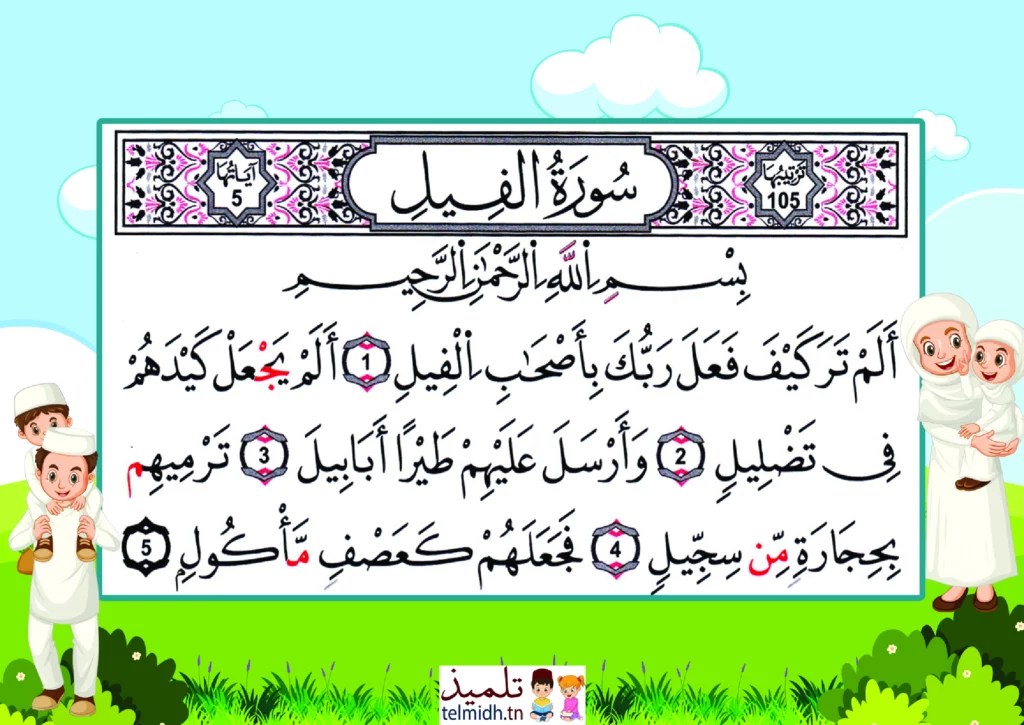 ترتيبها 105
سُورَةُ الْفِيلِ
آيَاتُهَا 5
بِسْمِ اِللَّهِ اِلرَّحْمَٰنِ اِلرَّحِيمِ
أَلَمْ تَرَ كَيْفَ فَعَلَ رَبُّكَ بِأَصْحَٰبِ اِلْفِيلِ 1 أَلَمْ يَجْعَلْ كَيْدَهُمْ
فِي تَضْلِيلٍ 2 وَأَرْسَلَ عَلَيْهِمْ طَيْرًا أَبَابِيلَ 3 تَرْمِيهِم
بِحِجَارَةٍ مِّن سِجِّيلٍ 4 فَجَعَلَهُمْ كَعَصْفٍ مَّأْكُولٍ 5
تلميذ
telmidh.tn